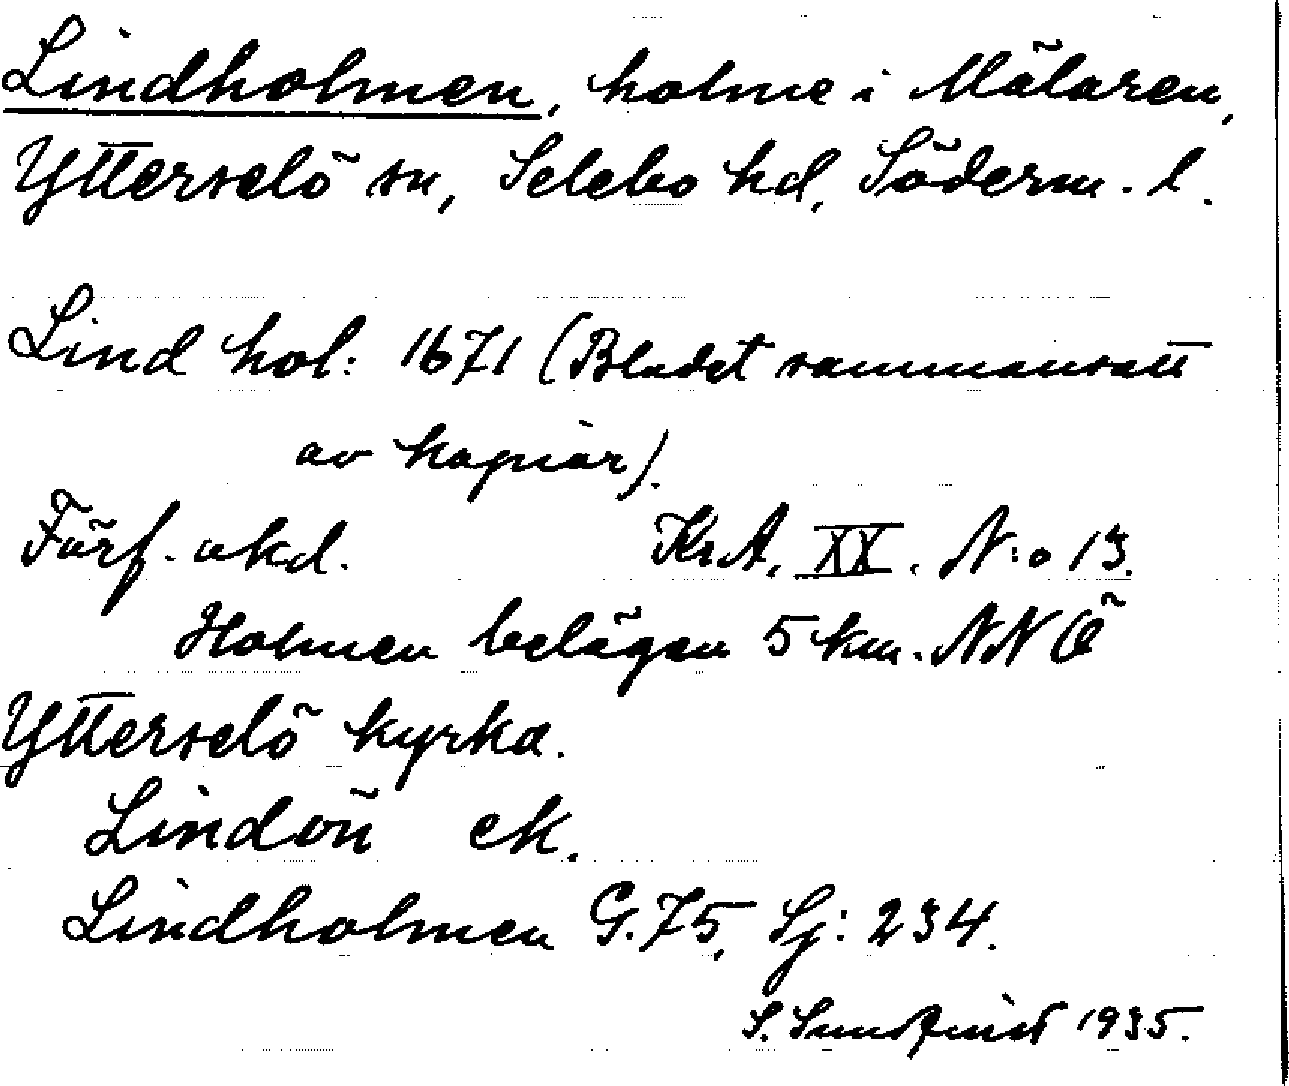 Lindholmen, holme i Mälaren,
Ytterselö sn, Selebo hd, Söderm. l.
Lind hol: 1671 (Bladet sammansatt
av kopior).
Förf. okd. Kr.A. XX. N:o 13.
Holmen belägen 5 km. NNÖ
Ytterselö kyrka.
Lindön ek.
Lindholmen G. 75, Sj: 234.
S. Sundquist 1935.